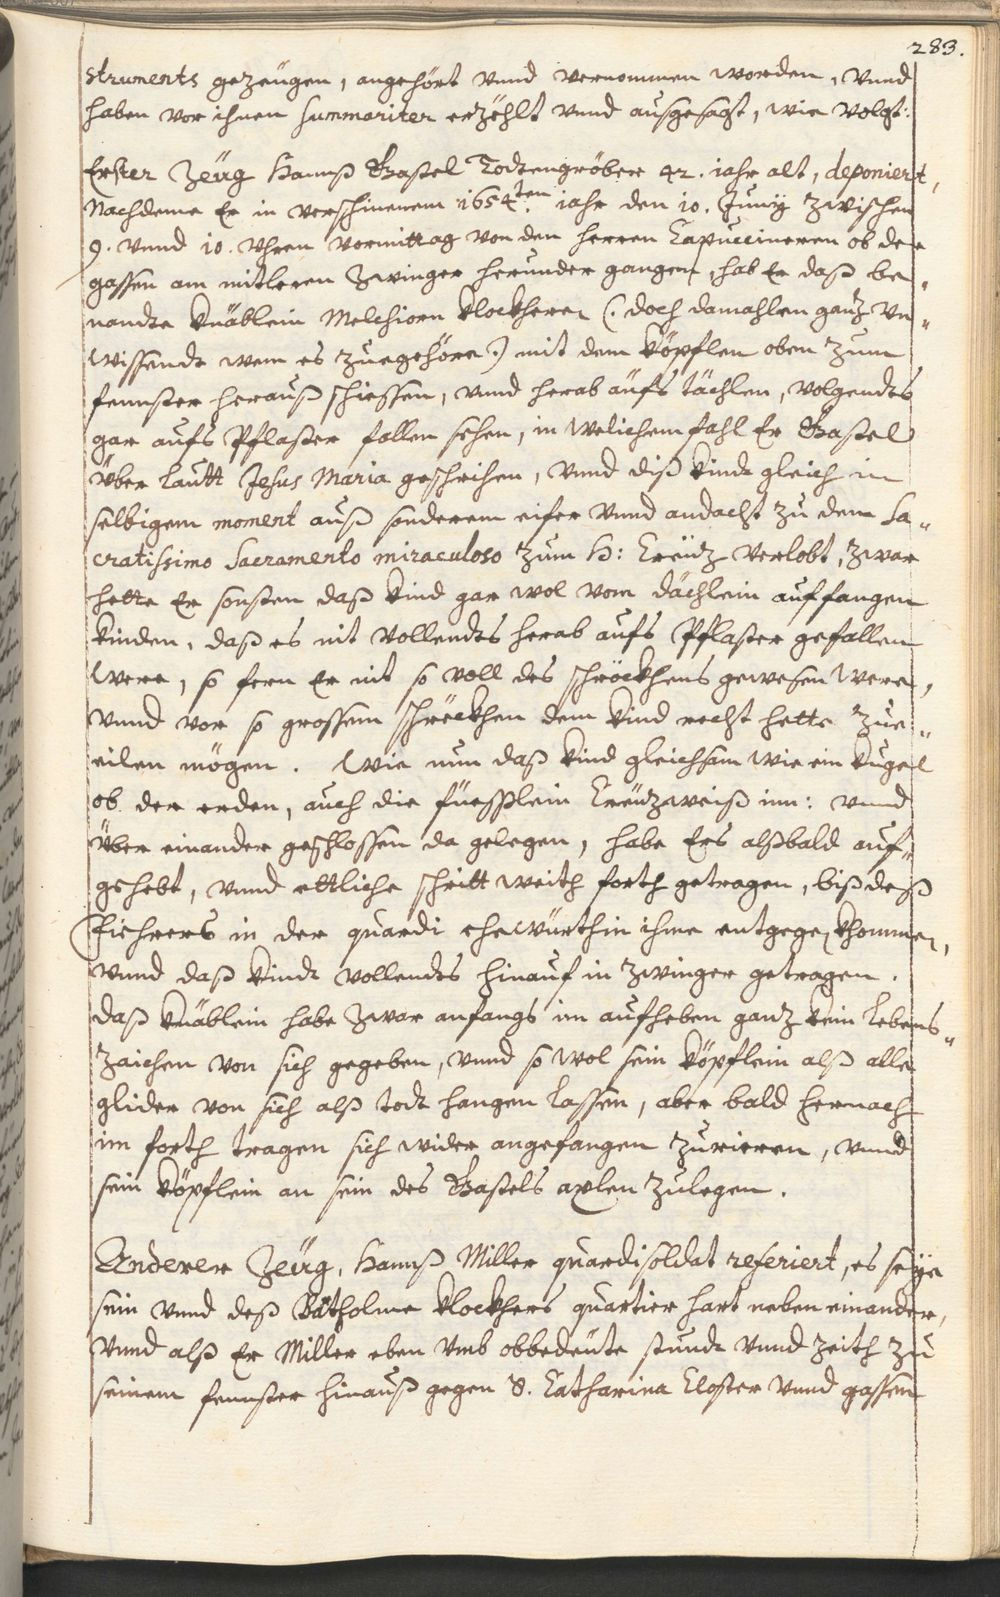 283.
struments gezeügen, angehört vnnd vernommen worden, vnnd
haben vor ihnen summariter erzöhlt vnnd ausgesagt, wie volgt:
Erster Zeüg Hannß Bastel Todtengröber 42. jahr alt, deponiert,
Nachdeme Er in verschinenem 1654.ten jahr den 10. Junij zwischen
9. vnnd 10. Vhren vormittag von den herren Capuccineren ob der
gassen am mitleren Zwinger herunder gangen, hab Er daß be„
nandte knäblein Melchiorn Klockheren (: doch damahlen ganz vn„
wissendt wem es zuegehöre :) mit dem köpflen oben zum
fennster herauß schiessen, vnnd herab aufs tächlen, volgendts
gar aufs Pflaster fallen sehen, in welichem fahl Er Bastel
über lautt Jesus Maria geschrihen, vnnd diß kindt gleich in
selbigem moment auß sonderem eifer vnnd andacht zu dem Sa„
cratissimo Sacramento miraculoso zum H: Creüz verlobt, zwar
hette Er sonsten daß kind gar wol vom dächlein auffangen
kinden, daß es nit vollendts herab aufs Pflaster gefallen
were, so fern Er nit so voll des schröckhens gewesen were,
vnnd vor so grossem schröckhen dem kind recht hette zue„
eilen mögen. Wie nun daß kind gleichsam wie ein kugel
ob der erden, auch die füesslein Creüzweiß inn: vnnd
über einander geschlossen da gelegen, habe Ers alßbald auf„
gehebt, vnnd ettliche schritt weith forth getragen, biß deß
fiehrers in der quardi ehewürthin ihme entgegen khommen,
vnnd daß kindt vollendts hinauf in Zwinger getragen.
daß knäblein habe zwar anfangs im aufheben ganz kein lebens„
zaichen von sich gegeben, vnnd so wol sein köpflein alß alle
glider von sich alß todt hangen lassen, aber bald hernach
im forth tragen sich wider angefangen zurieren, vnnd
sein köpflein an sein des Bastels axlen zulegen.
Anderer Zeüg, Hannß Miller quardisoldat referiert, es seye
sein vnnd deß Bätholme Klockhers quartier hart neben einander,
vnnd alß Er Miller eben vmb obbedeüte stundt vnnd zeith zu
seinem fennster hinauß gegen S. Catharina Closter vnnd gassen